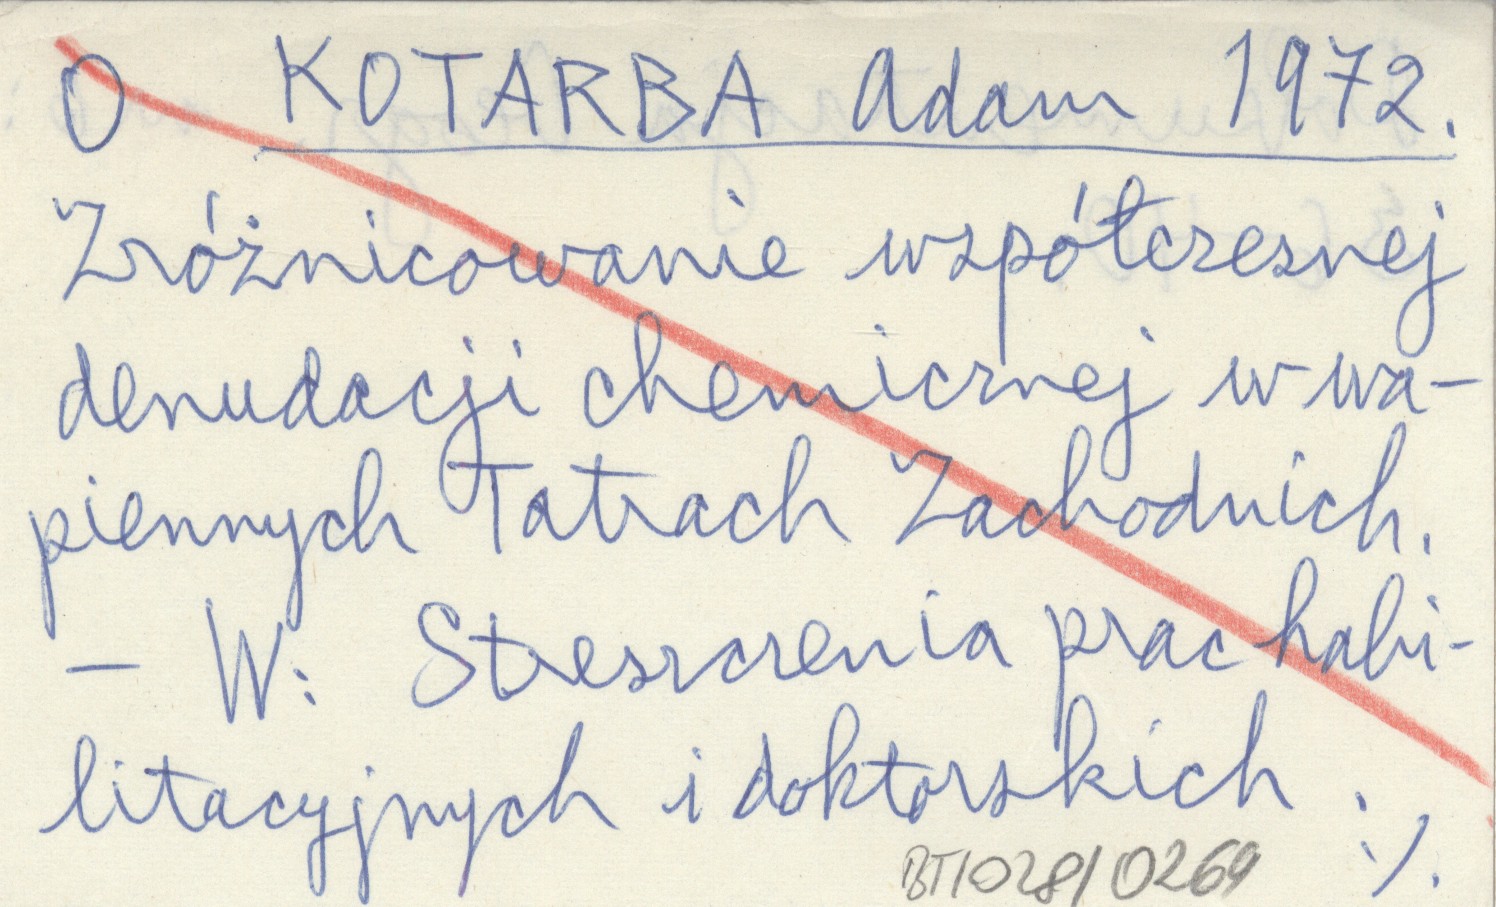 O KOTARBA Adam 1972.
Zróżnicowanie współczesnej
denudacji chemicznej w wa-
piennych Tatrach Zachodnich.
— W: Streszczenia prac habi-
litacyjnych i doktorskich :
·/.
BT/028/0269